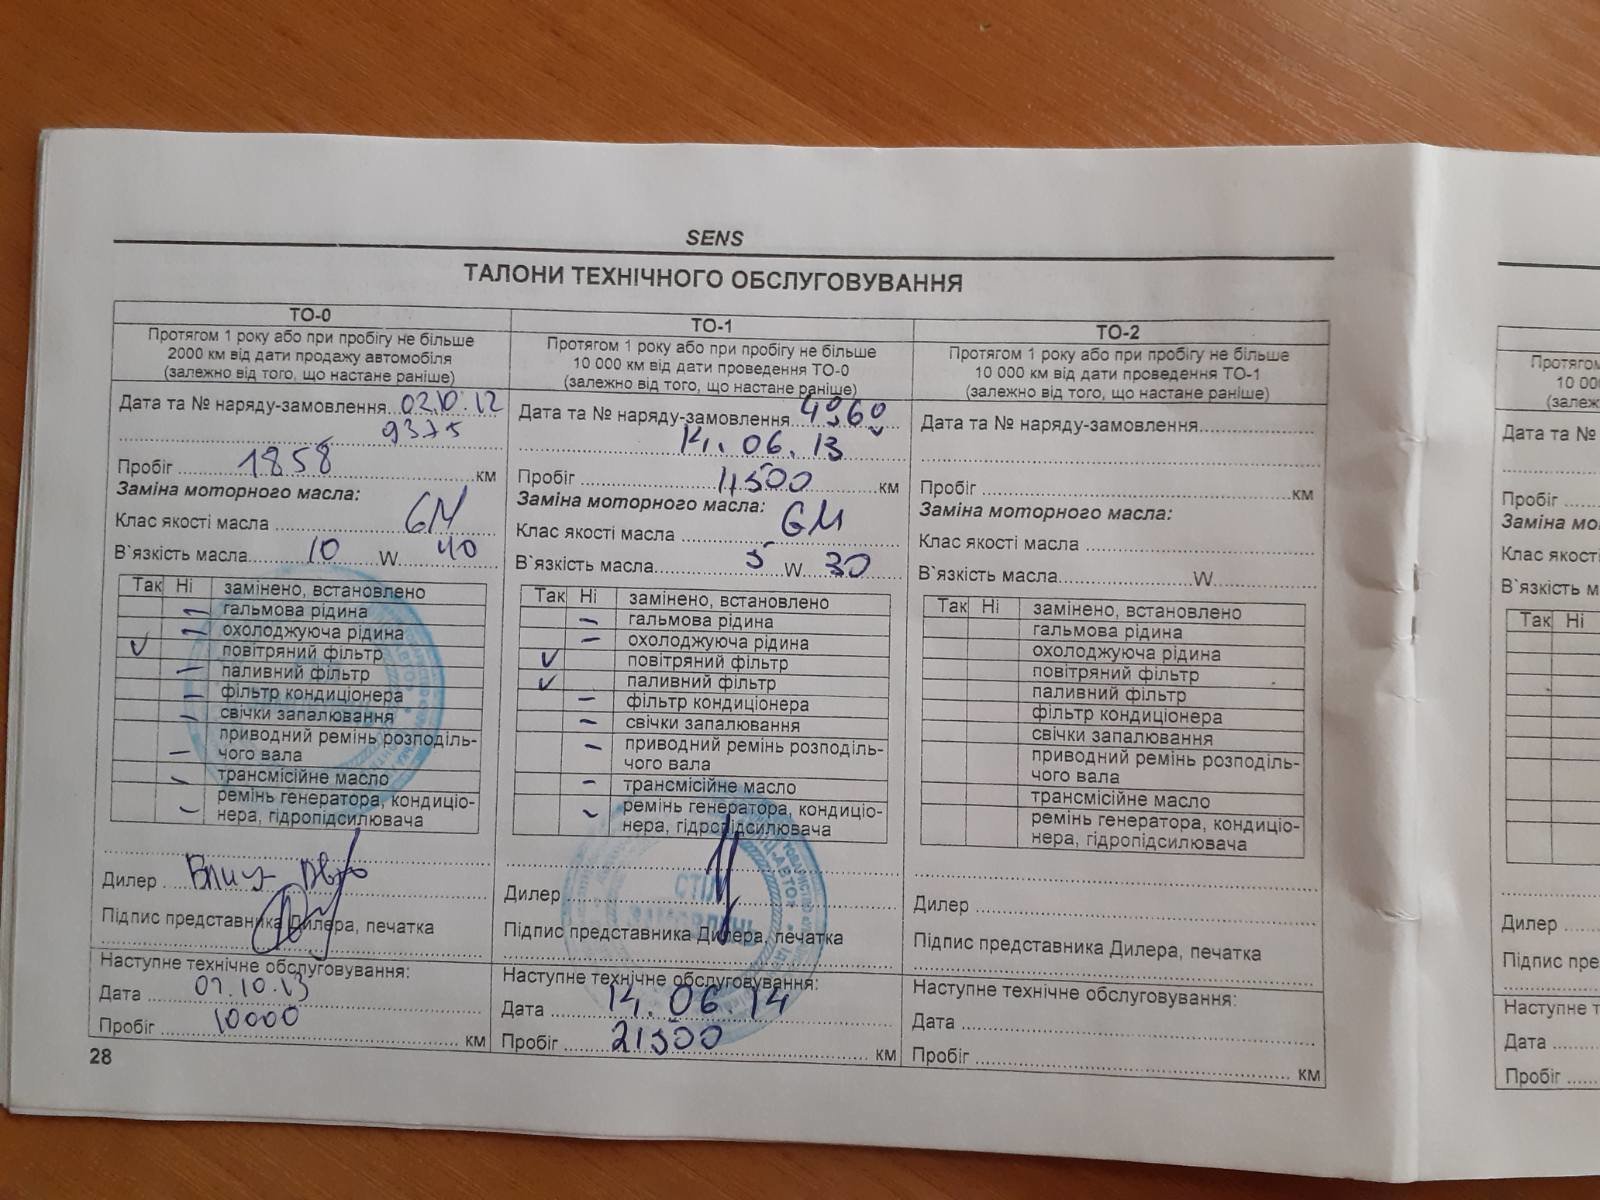 SENS
ТАЛОНИ ТЕХНІЧНОГО ОБСЛУГОВУВАННЯ
ТО-0
Протягом 1 року або при пробігу не більше
2000 км від дати продажу автомобіля
(залежно від того, що настане раніше)
Дата та № наряду-замовлення 02.10.12
9375
Пробіг 1858 км
Заміна моторного масла:
Клас якості масла GM
В`язкість масла 10 W 40
Так Ні замінено, встановлено
– гальмова рідина
– охолоджуюча рідина
✓ повітряний фільтр
– паливний фільтр
– фільтр кондиціонера
– свічки запалювання
приводний ремінь розподіль-
– чого вала
– трансмісійне масло
– ремінь генератора, кондиціо-
нера, гідропідсилювача
Дилер
Підпис представника Дилера, печатка
Наступне технічне обслуговування:
Дата 02.10.13
Пробіг 10000 км
28
ТО-1
Протягом 1 року або при пробігу не більше
10 000 км від дати проведення ТО-0
(залежно від того, що настане раніше)
Дата та № наряду-замовлення 4960
14.06.13
Пробіг 11500 км
Заміна моторного масла:
Клас якості масла GM
В`язкість масла 5 W 30
Так Ні замінено, встановлено
– гальмова рідина
– охолоджуюча рідина
✓ повітряний фільтр
✓ паливний фільтр
– фільтр кондиціонера
– свічки запалювання
– приводний ремінь розподіль-
чого вала
– трансмісійне масло
– ремінь генератора, кондиціо-
нера, гідропідсилювача
Дилер
Підпис представника Дилера, печатка
Наступне технічне обслуговування:
Дата 14.06.14
Пробіг 21500 км
ТО-2
Протягом 1 року або при пробігу не більше
10 000 км від дати проведення ТО-1
(залежно від того, що настане раніше)
Дата та № наряду-замовлення
Пробіг км
Заміна моторного масла:
Клас якості масла
В`язкість масла W
Так Ні замінено, встановлено
гальмова рідина
охолоджуюча рідина
повітряний фільтр
паливний фільтр
фільтр кондиціонера
свічки запалювання
приводний ремінь розподіль-
чого вала
трансмісійне масло
ремінь генератора, кондиціо-
нера, гідропідсилювача
Дилер
Підпис представника Дилера, печатка
Наступне технічне обслуговування:
Дата
Пробіг км
Протягом
10 00
(залеж
Дата та №
Пробіг
Заміна мо
Клас якості
В`язкість м
Так Ні
Дилер
Підпис пре
Наступне т
Дата
Пробіг